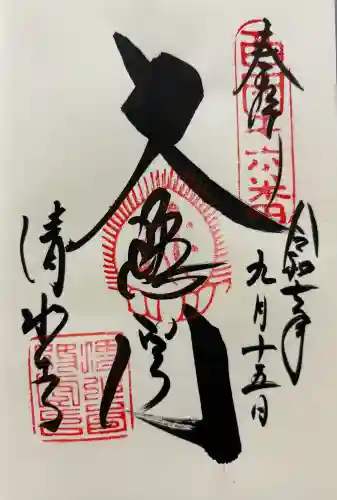 奉拝
西国十六番
令和七年
九月十五日
大悲閣
清水寺